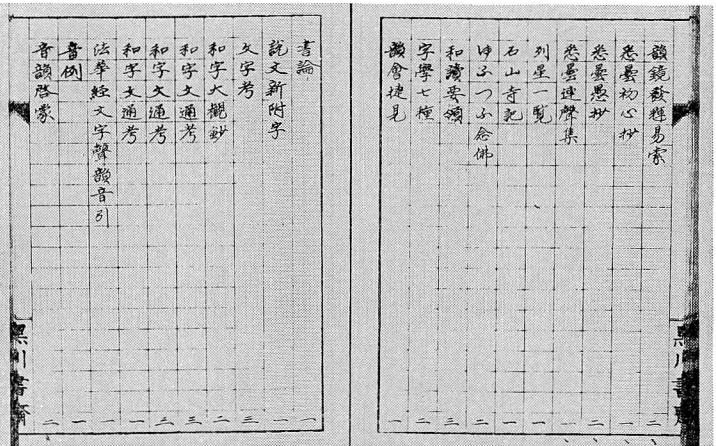 韻鏡發輝易索 二
悉曇初心抄 一
悉曇愚抄 二
悉曇連聲集 一
列星一覧 一
石山寺記 一
念佛 二
和讀要領 三
字學七種 二
韻會捷見 一
黑川書
書論 一
說文新附字 一
文字考 三
和字大觀鈔 二
和字文通考 三
和字文通考 三
和字文通考 一
法華經文字聲韻音引 一
音例 一
音韻啓蒙 二
黑川書齋